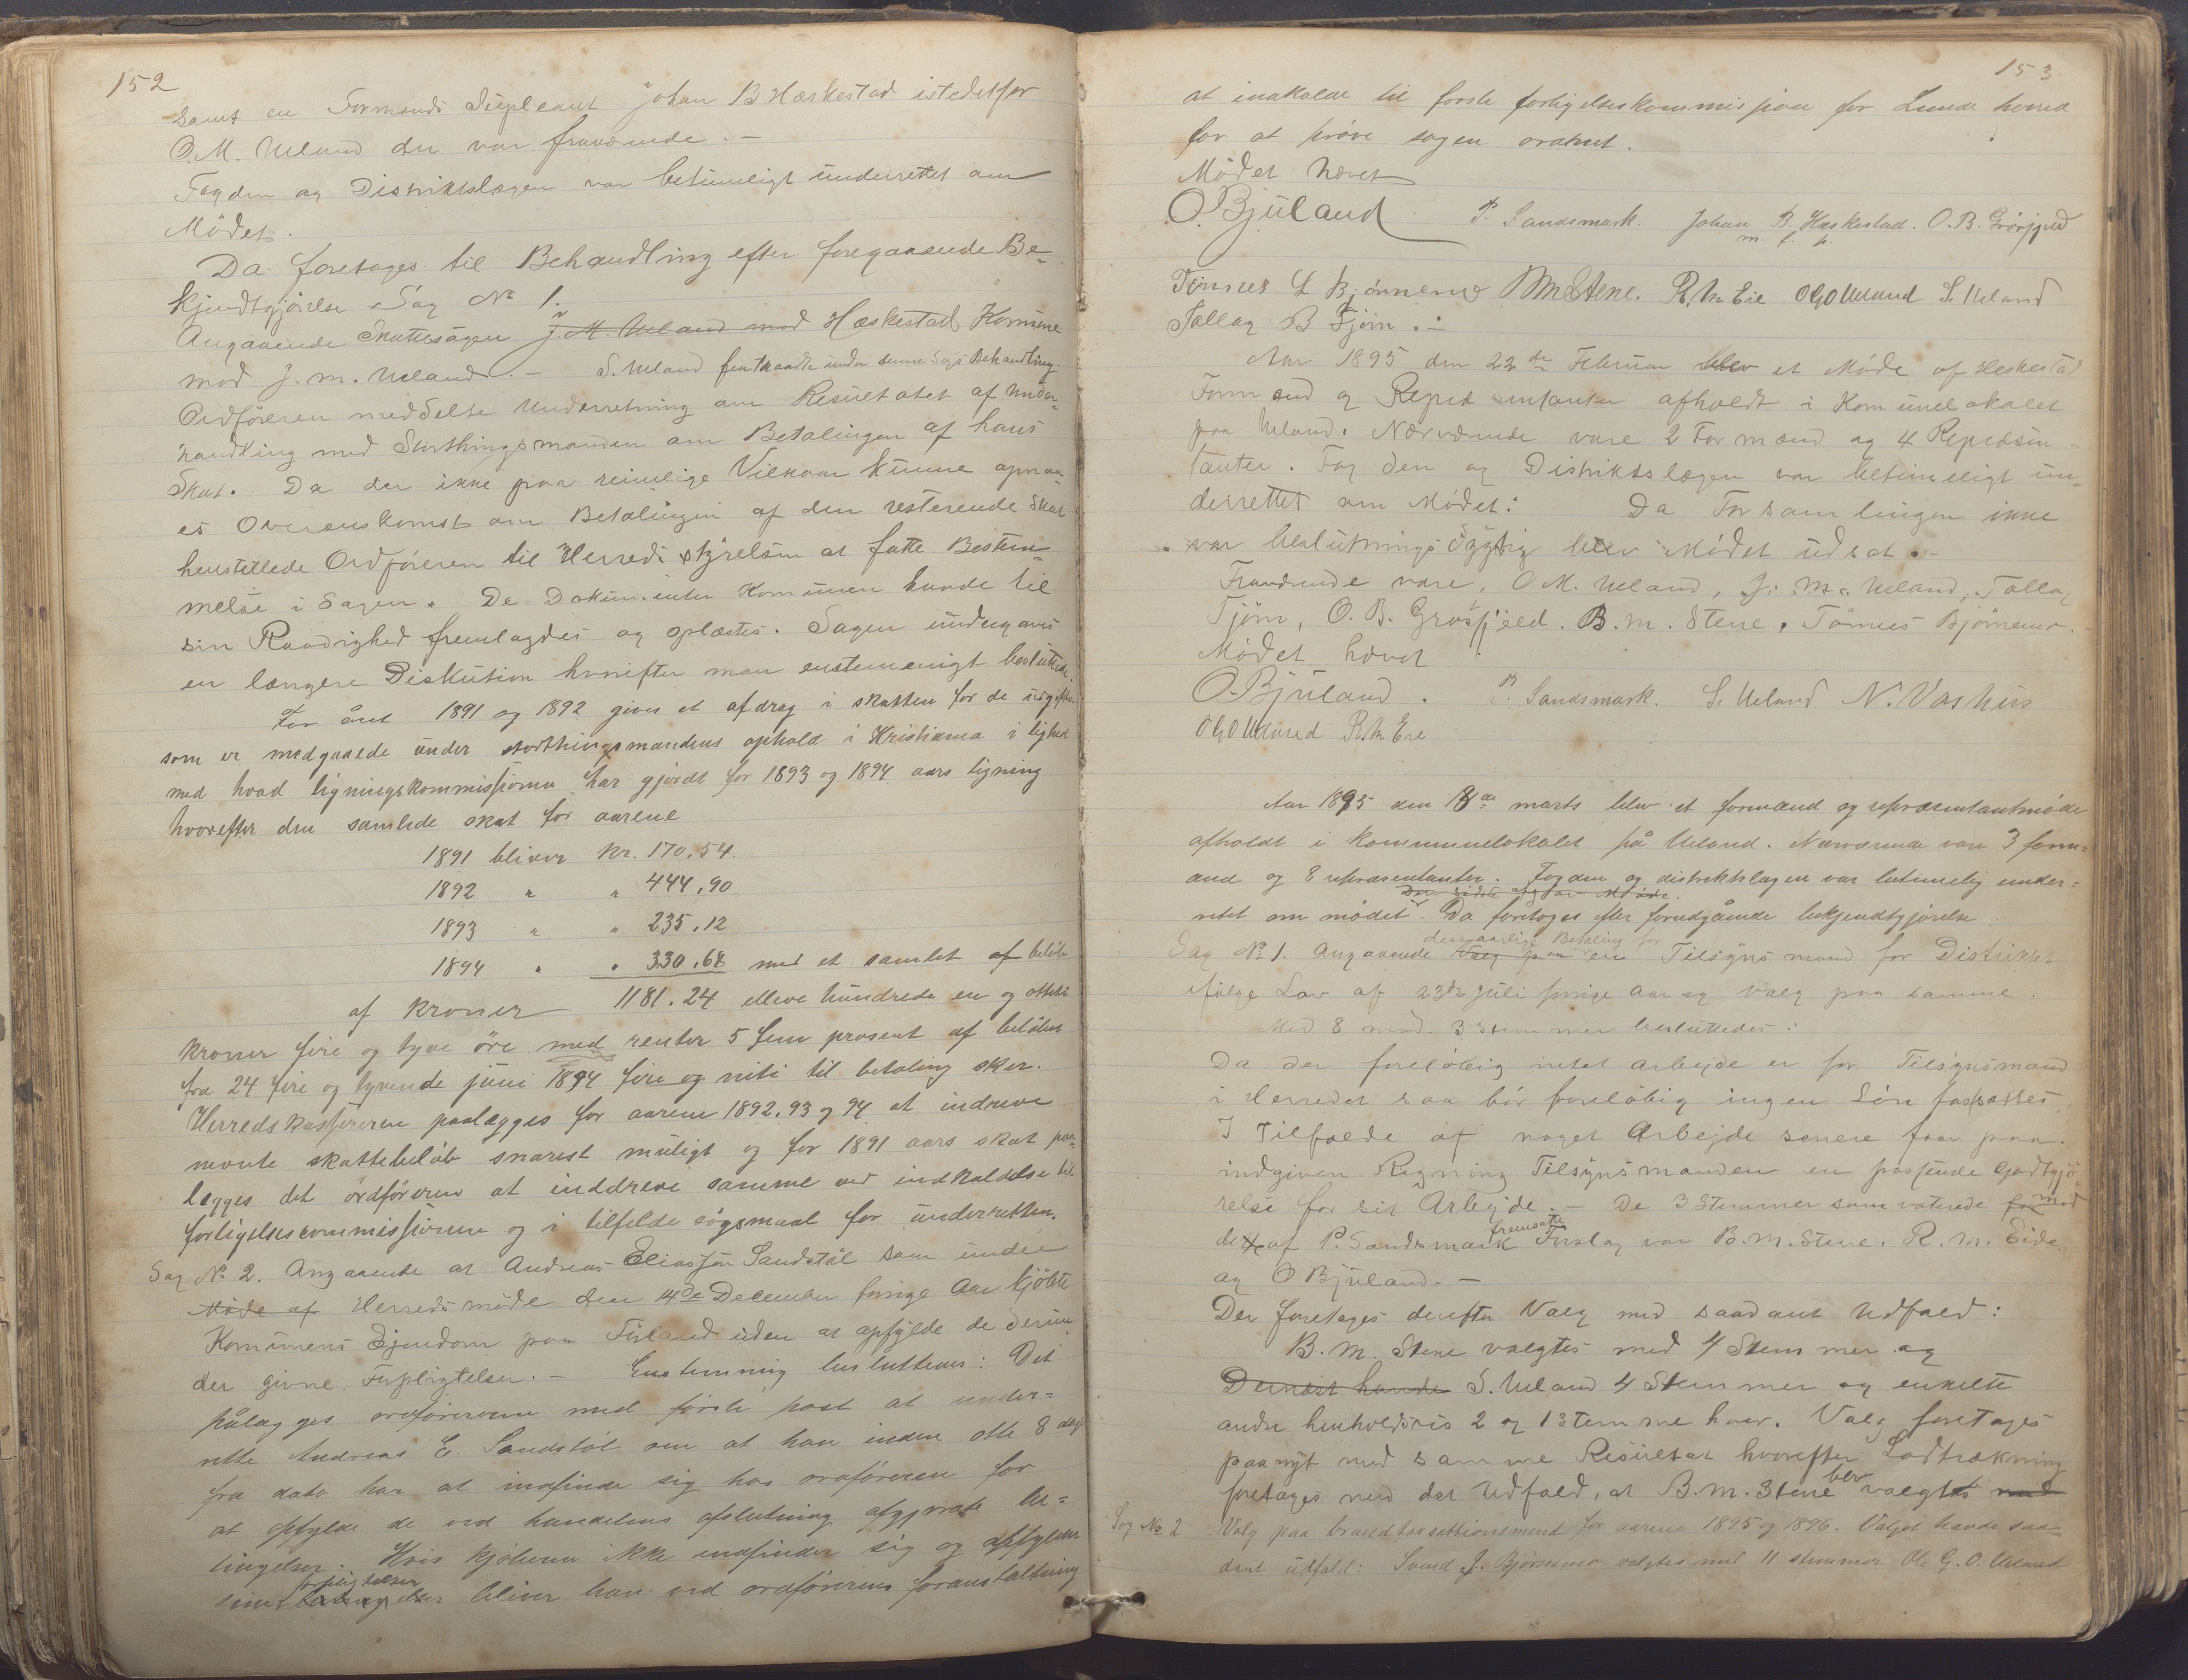 152
samt en Formands Supleant Johan B Hæskestad istedetfor
O. M. Ueland der var fraværende. –
Fogden og Distriktslægen var betimeligt underrettet om
Mødet.
Da foretoges til Behandling efter foregaaende Be-
kjendtgjørelse Sag No 1.
Angaaende Skattesagen J. M. Ueland mod Hæskestad Komune
mod J. M. Ueland. – S. Ueland fratraadte under denne Sags Behandling
Ordføreren meddelte Underretning om Resultatet af Under-
handling med Storthingsmanden om Betalingen af hans
Skat. Da der ikke paa rimelige Vilkaar kunne opnaa
es Overenskomst om Betalingen af den resterende Skat
henstillede Ordføreren til Herredsstyrelsen at fatte Bestem-
melse i Sagen. De Dokumenter Komunen havde til
sin Raadighed fremlagdes og oplæstes. Sagen undergaves
en længere Diskution hvorefter man enstemmigt besluttede:
For året 1891 og 1892 gives et afdrag i skatten for de udgifter
som er medgaaede under storthingsmandens ophold i Kristiania i lighed
med hvad ligningskommissionen har gjordt for 1893 og 1894 aars ligning
hvorefter den samlede skat for aarene
1891 bliver Kr. 170,54.
1892 " " 444,90
1893 " " 235,12
1894 " " 330,68 med et samlet af beløb
af kroner 1181.24 elleve hundrede en og otteti
kroner fire og tyve øre med renter 5 fem prosent af beløbet
fra 24 fire og tyvende juni 1894 fire og niti til betaling sker.
Herredskassereren paalægges for aarene 1892.93 og 94 at indreve
nevnte skattebeløb snarest muligt og for 1891 aars skat paa-
lægges det ordføreren at inddreve samme ved indkaldelse til
forligelsescommissionen og i tilfelde søgsmaal for underretten.
Sag No 2. Angaaende at Andreas Eliassen Sandstøl som under
Møde af Herredsmøde den 14de December forrige Aar kjøbte
Komunens Ejendom paa Füland uden at opfylde de derun
der givne Forpligtelser. – Enstemmig besluttedes: Det
pålægges ordføreren med første post at under=
rette Andreas E. Sandstøl om at han inden otte 8 dage
fra dato har at indfinde sig hos ordføreren for
at opfylde de ved handelens afslutning afgjorte be=
tingelser. Hvis kjøberen ikke indfinder sig og opfylder
forpligtelser
sine betingelser bliver han ved ordførerens foranstaltning
153
at indkalde til første forligelseskommission for Lunde herred
for at prøve sagen ordnet.
Mødet hævet
O. Bjuland P. Sandsmark. Johan B. Hæskestad. O. B. Grøsfjeld
m. f. p.
Tønnes L Bjørnemo B M Stene. R. M Eie O G O Ueland S. Ueland
Tollag B Tjørn. –
Aar 1895 den 22de Februar blev et Møde af Heskestad
Formænd og Repræsentanter afholdt i Komunelokalet
paa Ueland. Nærværende vare 2 Formænd og 4 Repræsen-
tanter. Fogden og Distriktslægen var betimeligt un-
derrettet om Mødet: Da Forsamlingen ikke
var beslutningsdygtig blev Mødet udsat. –
Fraværende vare, O M. Ueland, J. M. Ueland, Tollag
Tjørn, O. B. Grøsfjeld. B. M. Stene, Tønnes Bjørnemo.
Mødet hævet
O. Bjuland. P. Sandsmark. S. Ueland N. Vashus
O G O Ueland R. M Eie
Aar 1895 den 18de marts blev et formænd og representantmøde
afholdt i kommunelokalet på Ueland. Nærværende vare 3 form=
ænd og 8 representanter. Fogden og distriktslægen var betimelig under=
rettet om mødet. Da foretoges efter forudgående bekjendtgjørelse
den aarlige Betaling for
Sag No 1. Angaaende Valg paa en Tilsynsmand for Distriktet
ifølge Lov af 23de Juli forrige Aar og Valg paa samme.
Med 8 mod 3 Stemmer besluttedes:
Da der foreløbig intet Arbejde er for Tilsynsmand
i Herredet saa bør foreløbig ingen Løn fastsættes
I Tilfælde af noget Arbejde senere faar paa
indgiven Regning Tilsynsmanden en passende Godtgjø
relse for sit Arbejde. – De 3 Stemmer som voterede for mod
fremsatte
dette af P. Sandsmark Forslag var B. M. Stene. R. M. Eide
og O Bjuland. –
Der foretoges derefter Valg med saadant Udfald:
B. M. Stene valgtes med 4 Stemmer og
Dernæst havde S. Ueland 4 Stemmer og enkelte
andre henholdsvis 2 og 1 Stemme hver. Valg foretoges
paanyt med samme Resultat hvorefter Lodtrækning
foretoges med det Udfald, at B. M. Stene blev valgt med
Sag No 2 Valg paa brandtaxsationsmend for aarene 1895 og 1896. Valget havde saa=
dant udfald: Svend J. Bjørnemo valgtes med 11 stemmer Ole G. O. Ueland